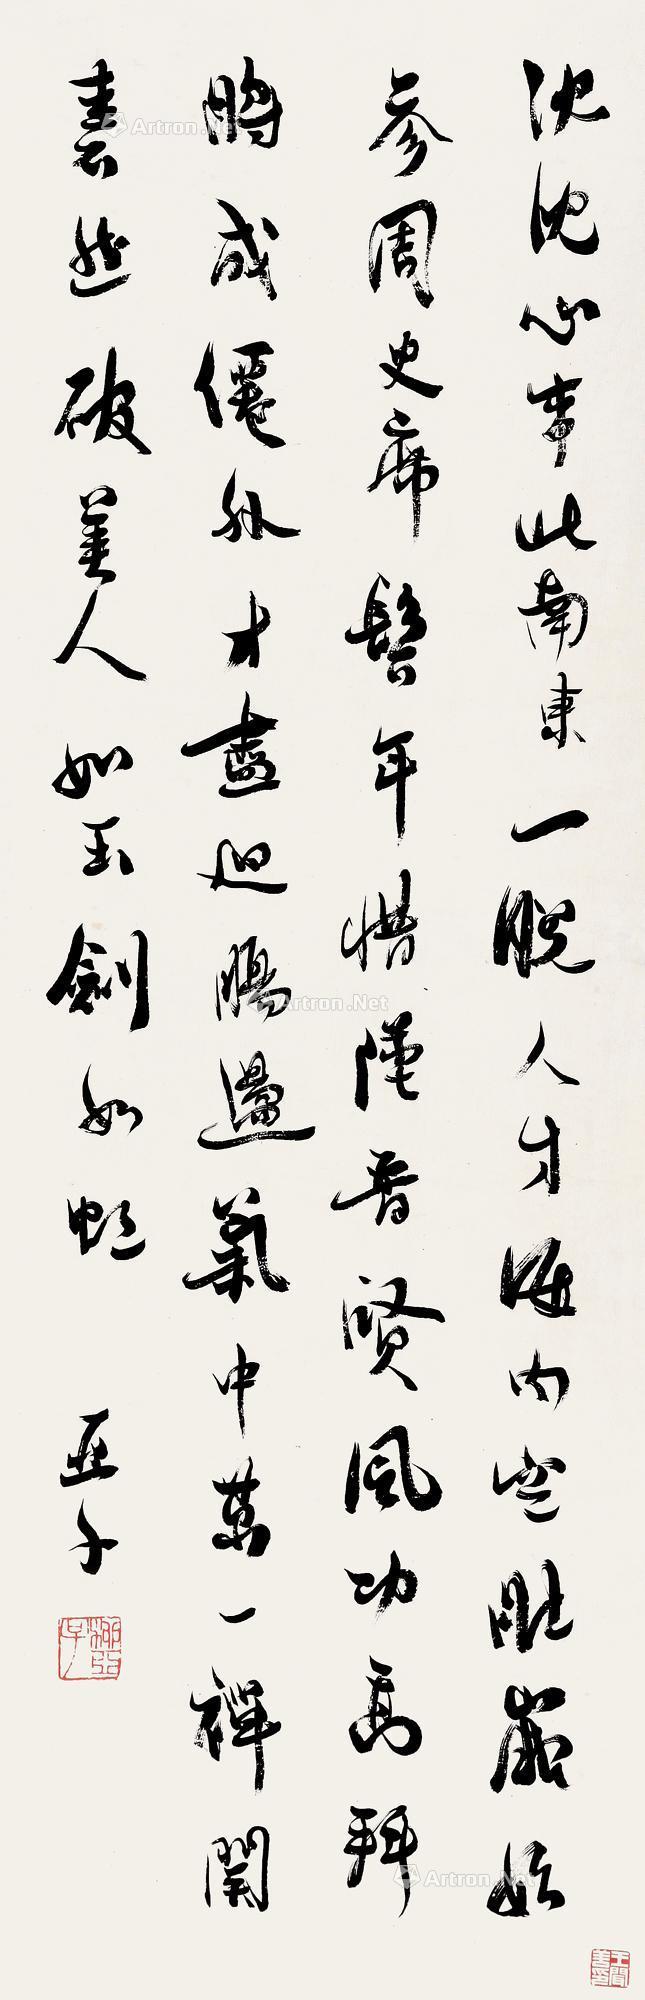 沈沈心事北南東一睨人才海内空壯歲始
參周史席髫年惜墮晉賢風功高拜
將成僊外才盡迴腸盪氣中萬一禪關
砉然破美人如玉劍如虹
亞子
柳亞子
Artron.Net
Artron.Net
Artron.Net